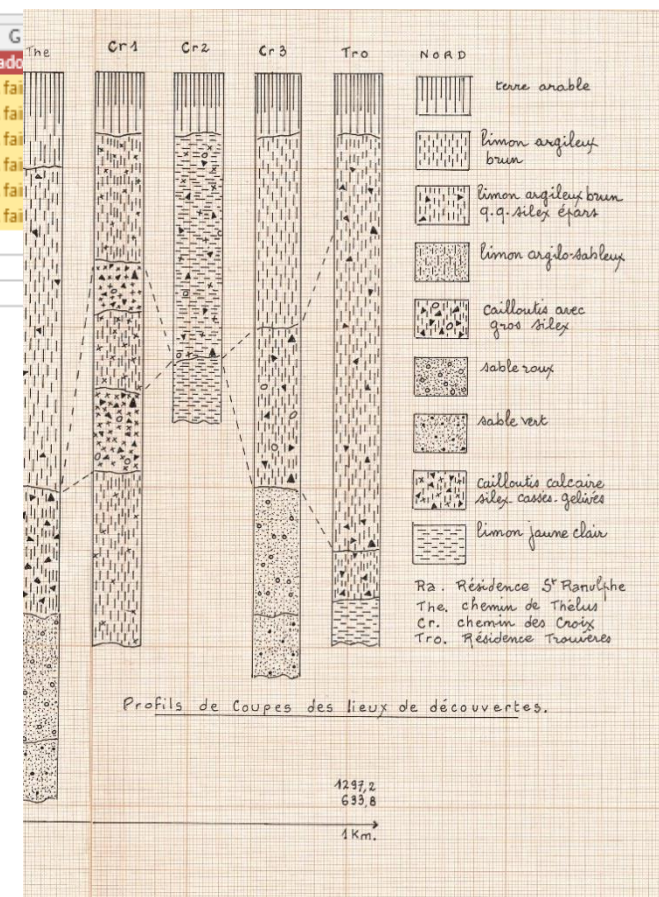 G
ado
fai
fai
fai
fai
fai
fai
The
Cr1
Cr2
Cr3
Tro
NORD
terre arable
limon argileux
brun
limon argileux brun
q.q. silex épars
limon argilo-sableux
cailloutis avec
gros silex
sable roux
sable vert
cailloutis calcaire
silex cassés-gélives
limon jaune clair
Ra. Résidence St Ranulphe
The. chemin de Thélus
Cr. chemin des Croix
Tro. Résidence Trouvères
Profils de Coupes des lieux de découvertes.
1297,2
633,8
1 Km.